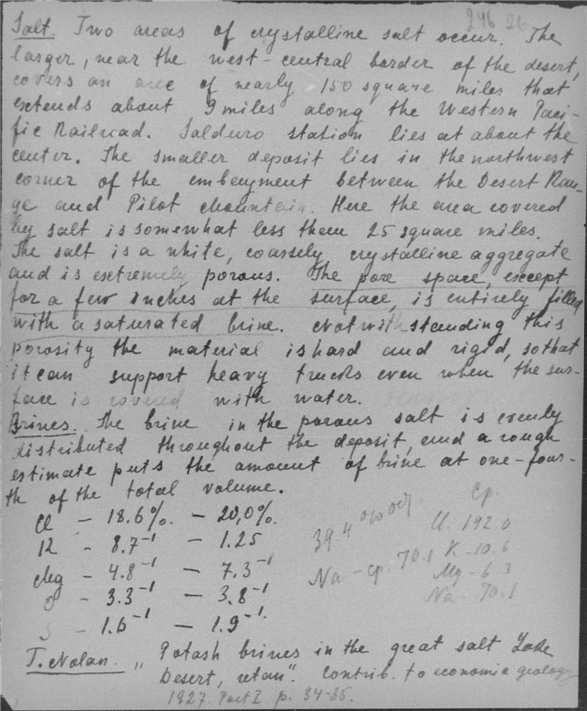 246 26
Salt. Two areas of crystalline salt occur. The
larger, near the west-central border of the desert,
covers an area of nearly 150 square miles that
extends about 9 miles along the Western Paci-
fic Railroad. Salduro station lies at about the
center. The smaller deposit lies in the northwest
corner of the embayment between the Desert Ran-
ge and Pilot Mountain. Here the area covered
by salt is somewhat less them 25 square miles.
The salt is a white, coarsely crystalline aggregate
and is extremely porous. The pore space, except
for a few inches at the surface, is entirely filled
with a saturated brine. Notwithstanding this
porosity the material is hard and rigid, so that
it can support heavy trucks even when the sur-
face is covered with water.
Brines. The brine in the porous salt is evenly
distributed throughout the deposit, and a rough
estimate puts the amount of brine at one-four-
th of the total volume.
Cl - 18.6% - 20,0%.
K - 8.7⁻¹ - 1.25
Mg - 4.8⁻¹ - 7.3⁻¹
3.3⁻¹ - 3.8⁻¹
S - 1.6⁻¹ - 1.9⁻¹
39.4
Na - cp. 70.1
Cp.
Cl. 192.0
K - 10.6
Mg - 6.3
Na. 70.1
T. Nolan. „Potash brines in the great salt Lake
Desert, Utah". Contrib. to economic geology
1927. Part I p. 34-35.